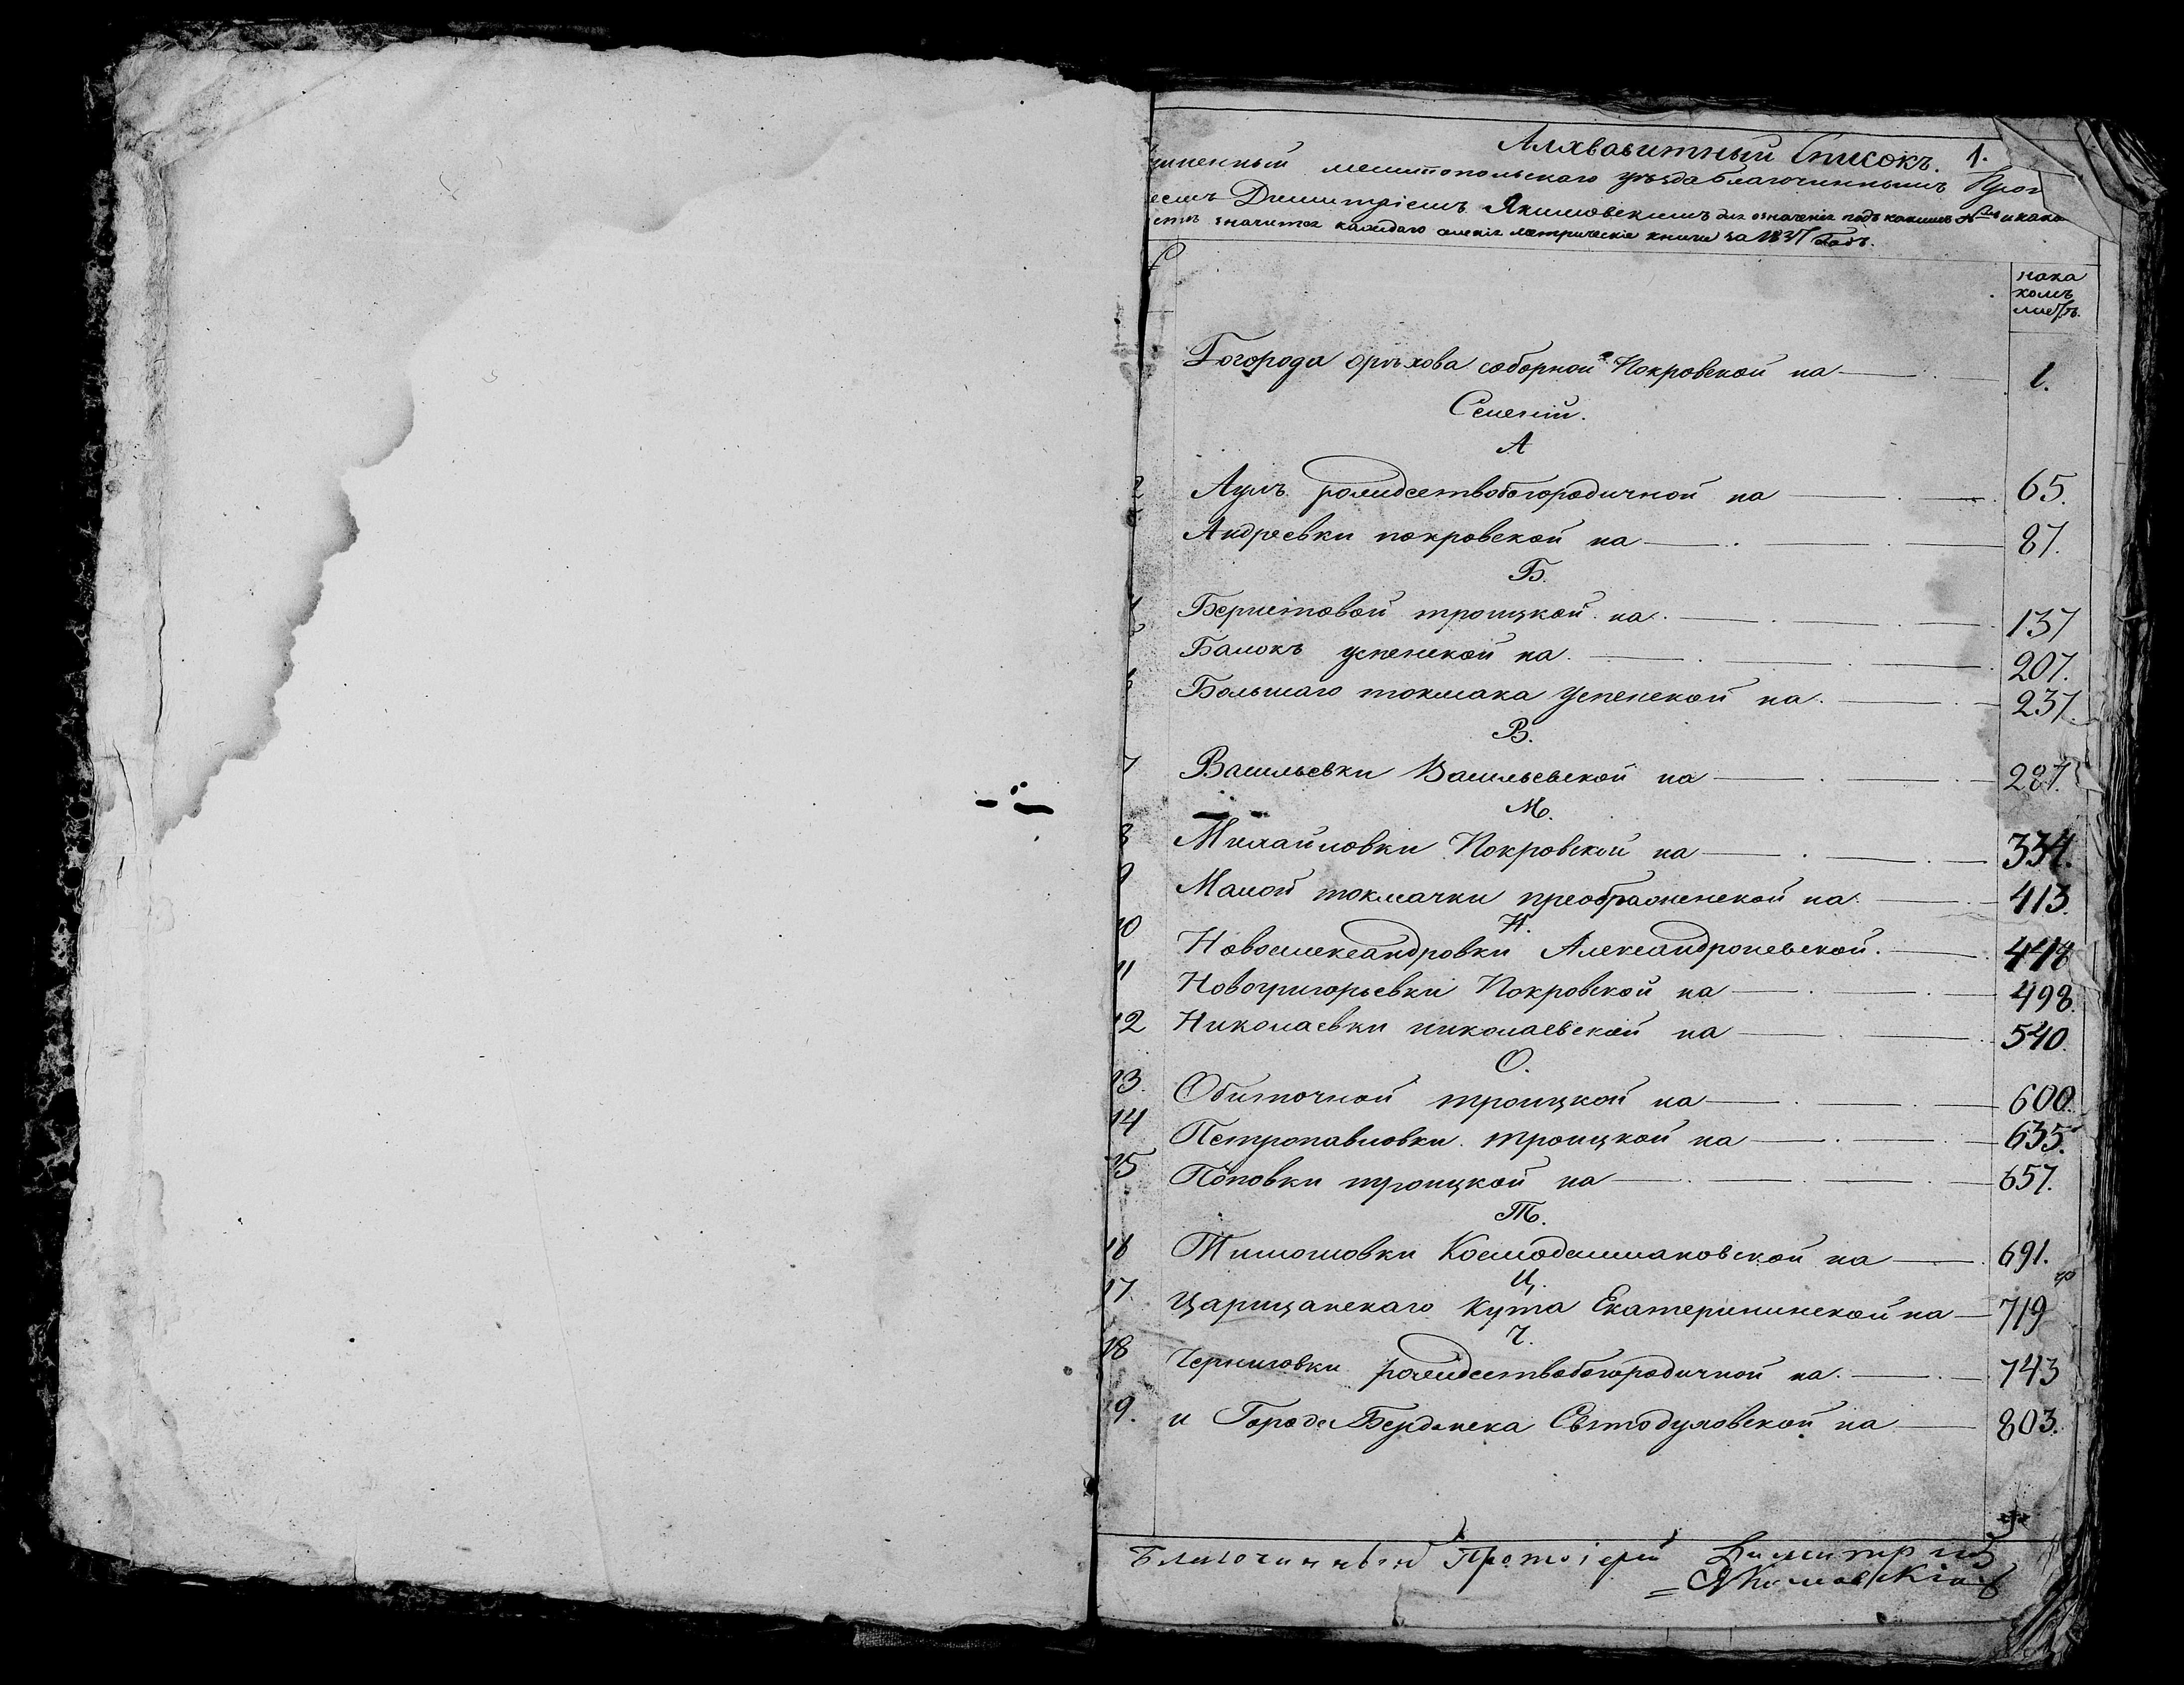 Алхвавитный Списокъ. 1.
чиненный мелитопольскаго уѣзда благочиннымъ Прот
еемъ Димитріемъ Якимовскимъ для означенія подъ какимъ № и како
значится каждаго селенія метрическіе книги за 1837 Годъ.
на ка
комъ
листѣ.
1 города орѣхова соборной Покровской на 1.
Селеній.
А
2 Аулъ рождествобогородичной на 65.
Андреевки покровской на 87.
Б.
4 Берестовой троицкой на. 137
Балокъ успенской на. 207.
6 Большаго токмака Успенской на. 237.
В.
7 Васильевки Васильевской на 287.
М.
8 Михайловки Покровской на 334.
9 Малой токмачки преображенской на. 413.
Н.
10 Новоалександровки Александроневской. 448
11 Новогригорьевки Покровской на 498.
12 Николаевки николаевской на 540.
О.
13. Обиточной троицкой на 600.
14 Петропавловки троицкой на 635.
15 Поповки троицкой на 657.
Т.
16 Тимошовки Космодамиановской на 691.
Ц.
17. Царицанскаго Кута Екатерининской на 719
Ч.
18 Черниговки рождествобогородичной на. 743
9. и Города Бердянска Свѣтодуховской на 803.
Благочинный Протоіерей Димитрій
Якимовскій